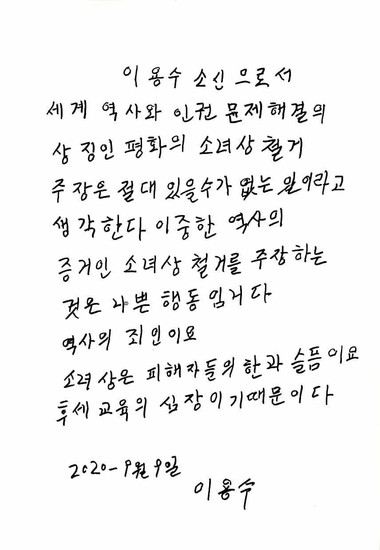 이용수 소신으로서
세계 역사와 인권 문제해결의
상징인 평화의 소녀상 철거
주장은 절대 있을수가 없는 일이라고
생각한다 이중한 역사의
증거인 소녀상 철거를 주장하는
것은 나쁜 행동임거다
역사의 죄인이요
소녀상은 피해자들의 한과 슬픔이요
후세 교육의 심장이기때문이다
2020-9월9일
이용수